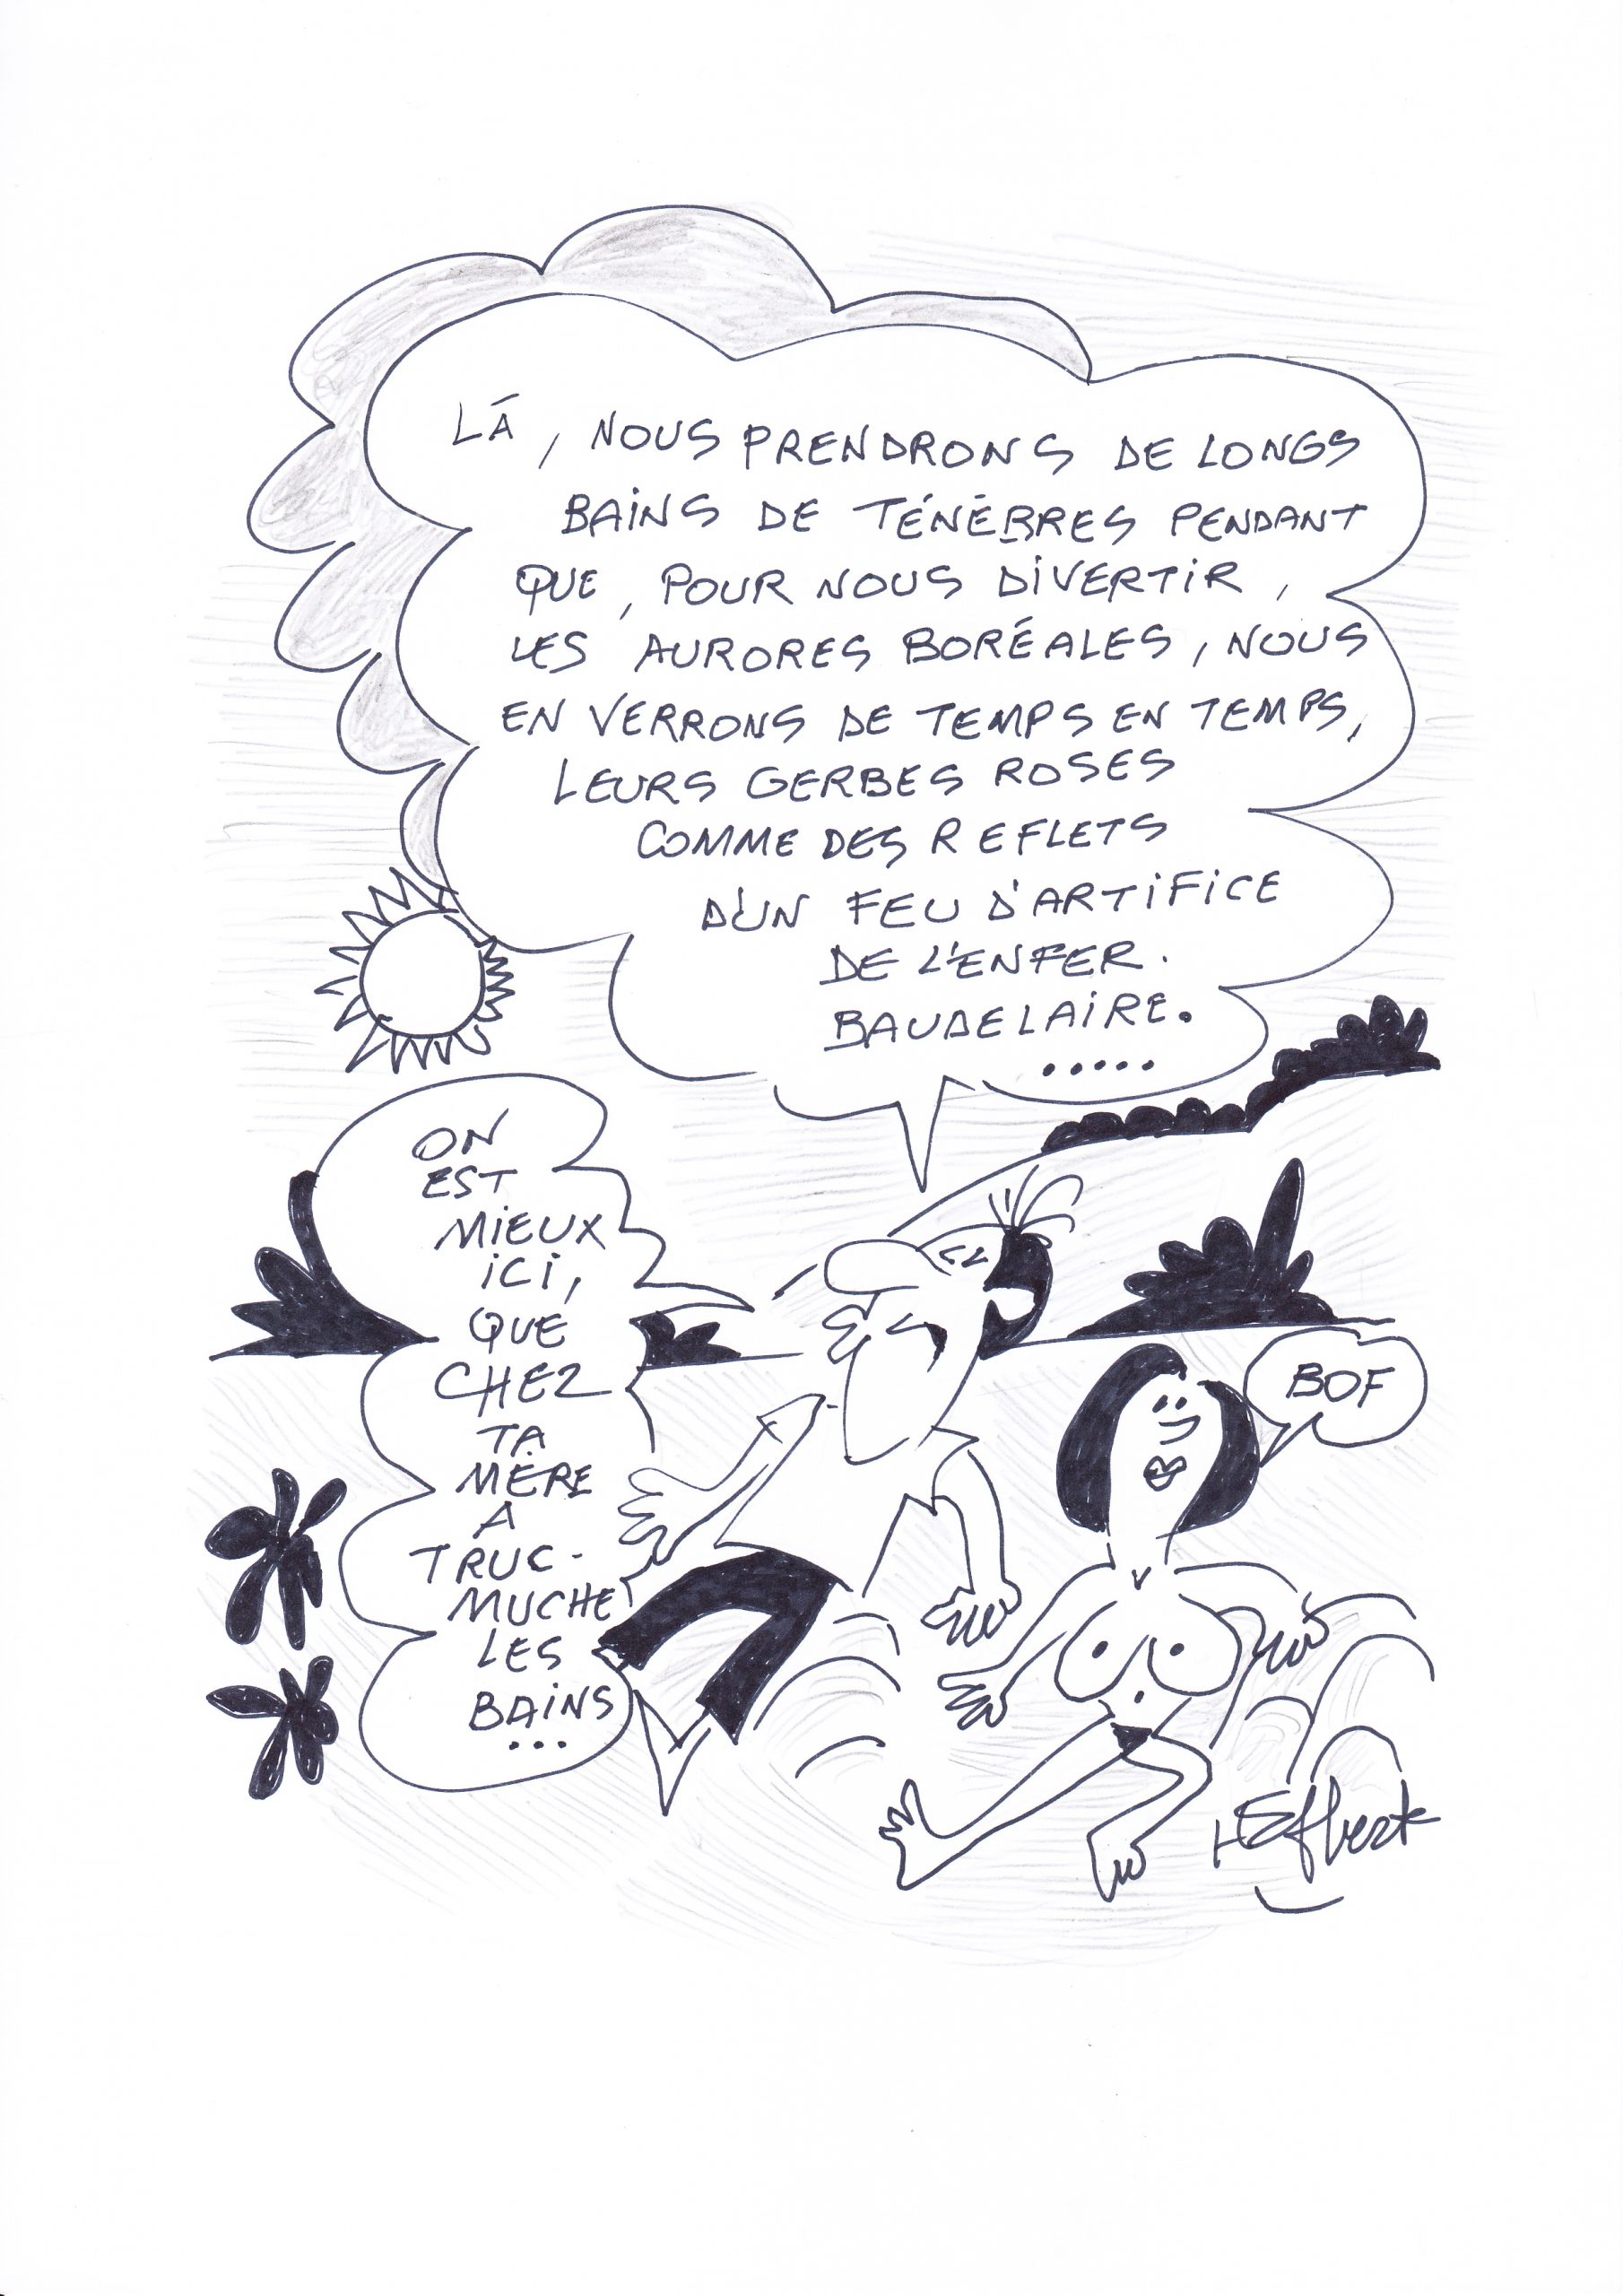 LÀ, NOUS PRENDRONS DE LONGS
BAINS DE TÉNÈBRES PENDANT
QUE, POUR NOUS DIVERTIR,
LES AURORES BORÉALES, NOUS
EN VERRONS DE TEMPS EN TEMPS,
LEURS GERBES ROSES
COMME DES REFLETS
D'UN FEU D'ARTIFICE
DE L'ENFER.
BAUDELAIRE.
.....
ON
EST
MIEUX
ICI,
QUE
CHEZ
TA
MÈRE
A
TRUC-
MUCHE
LES
BAINS
...
BOF